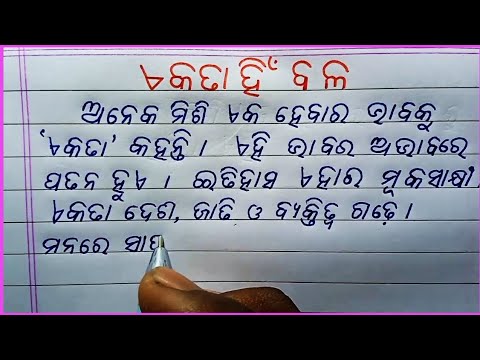 ଏକତା ହିଁ ବଳ
ଅନେକ ମିଶି ଏକ ହେବାର ଭାବକୁ
'ଏକତା' କହନ୍ତି । ଏହି ଭାବର ଅଭାବରେ
ପତନ ହୁଏ । ଇତିହାସ ଏହାର ମୂକସାକ୍ଷୀ
ଏକତା ଦେଶ, ଜାତି ଓ ବ୍ୟକ୍ତିତ୍ୱ ଗଢ଼େ ।
ମନରେ